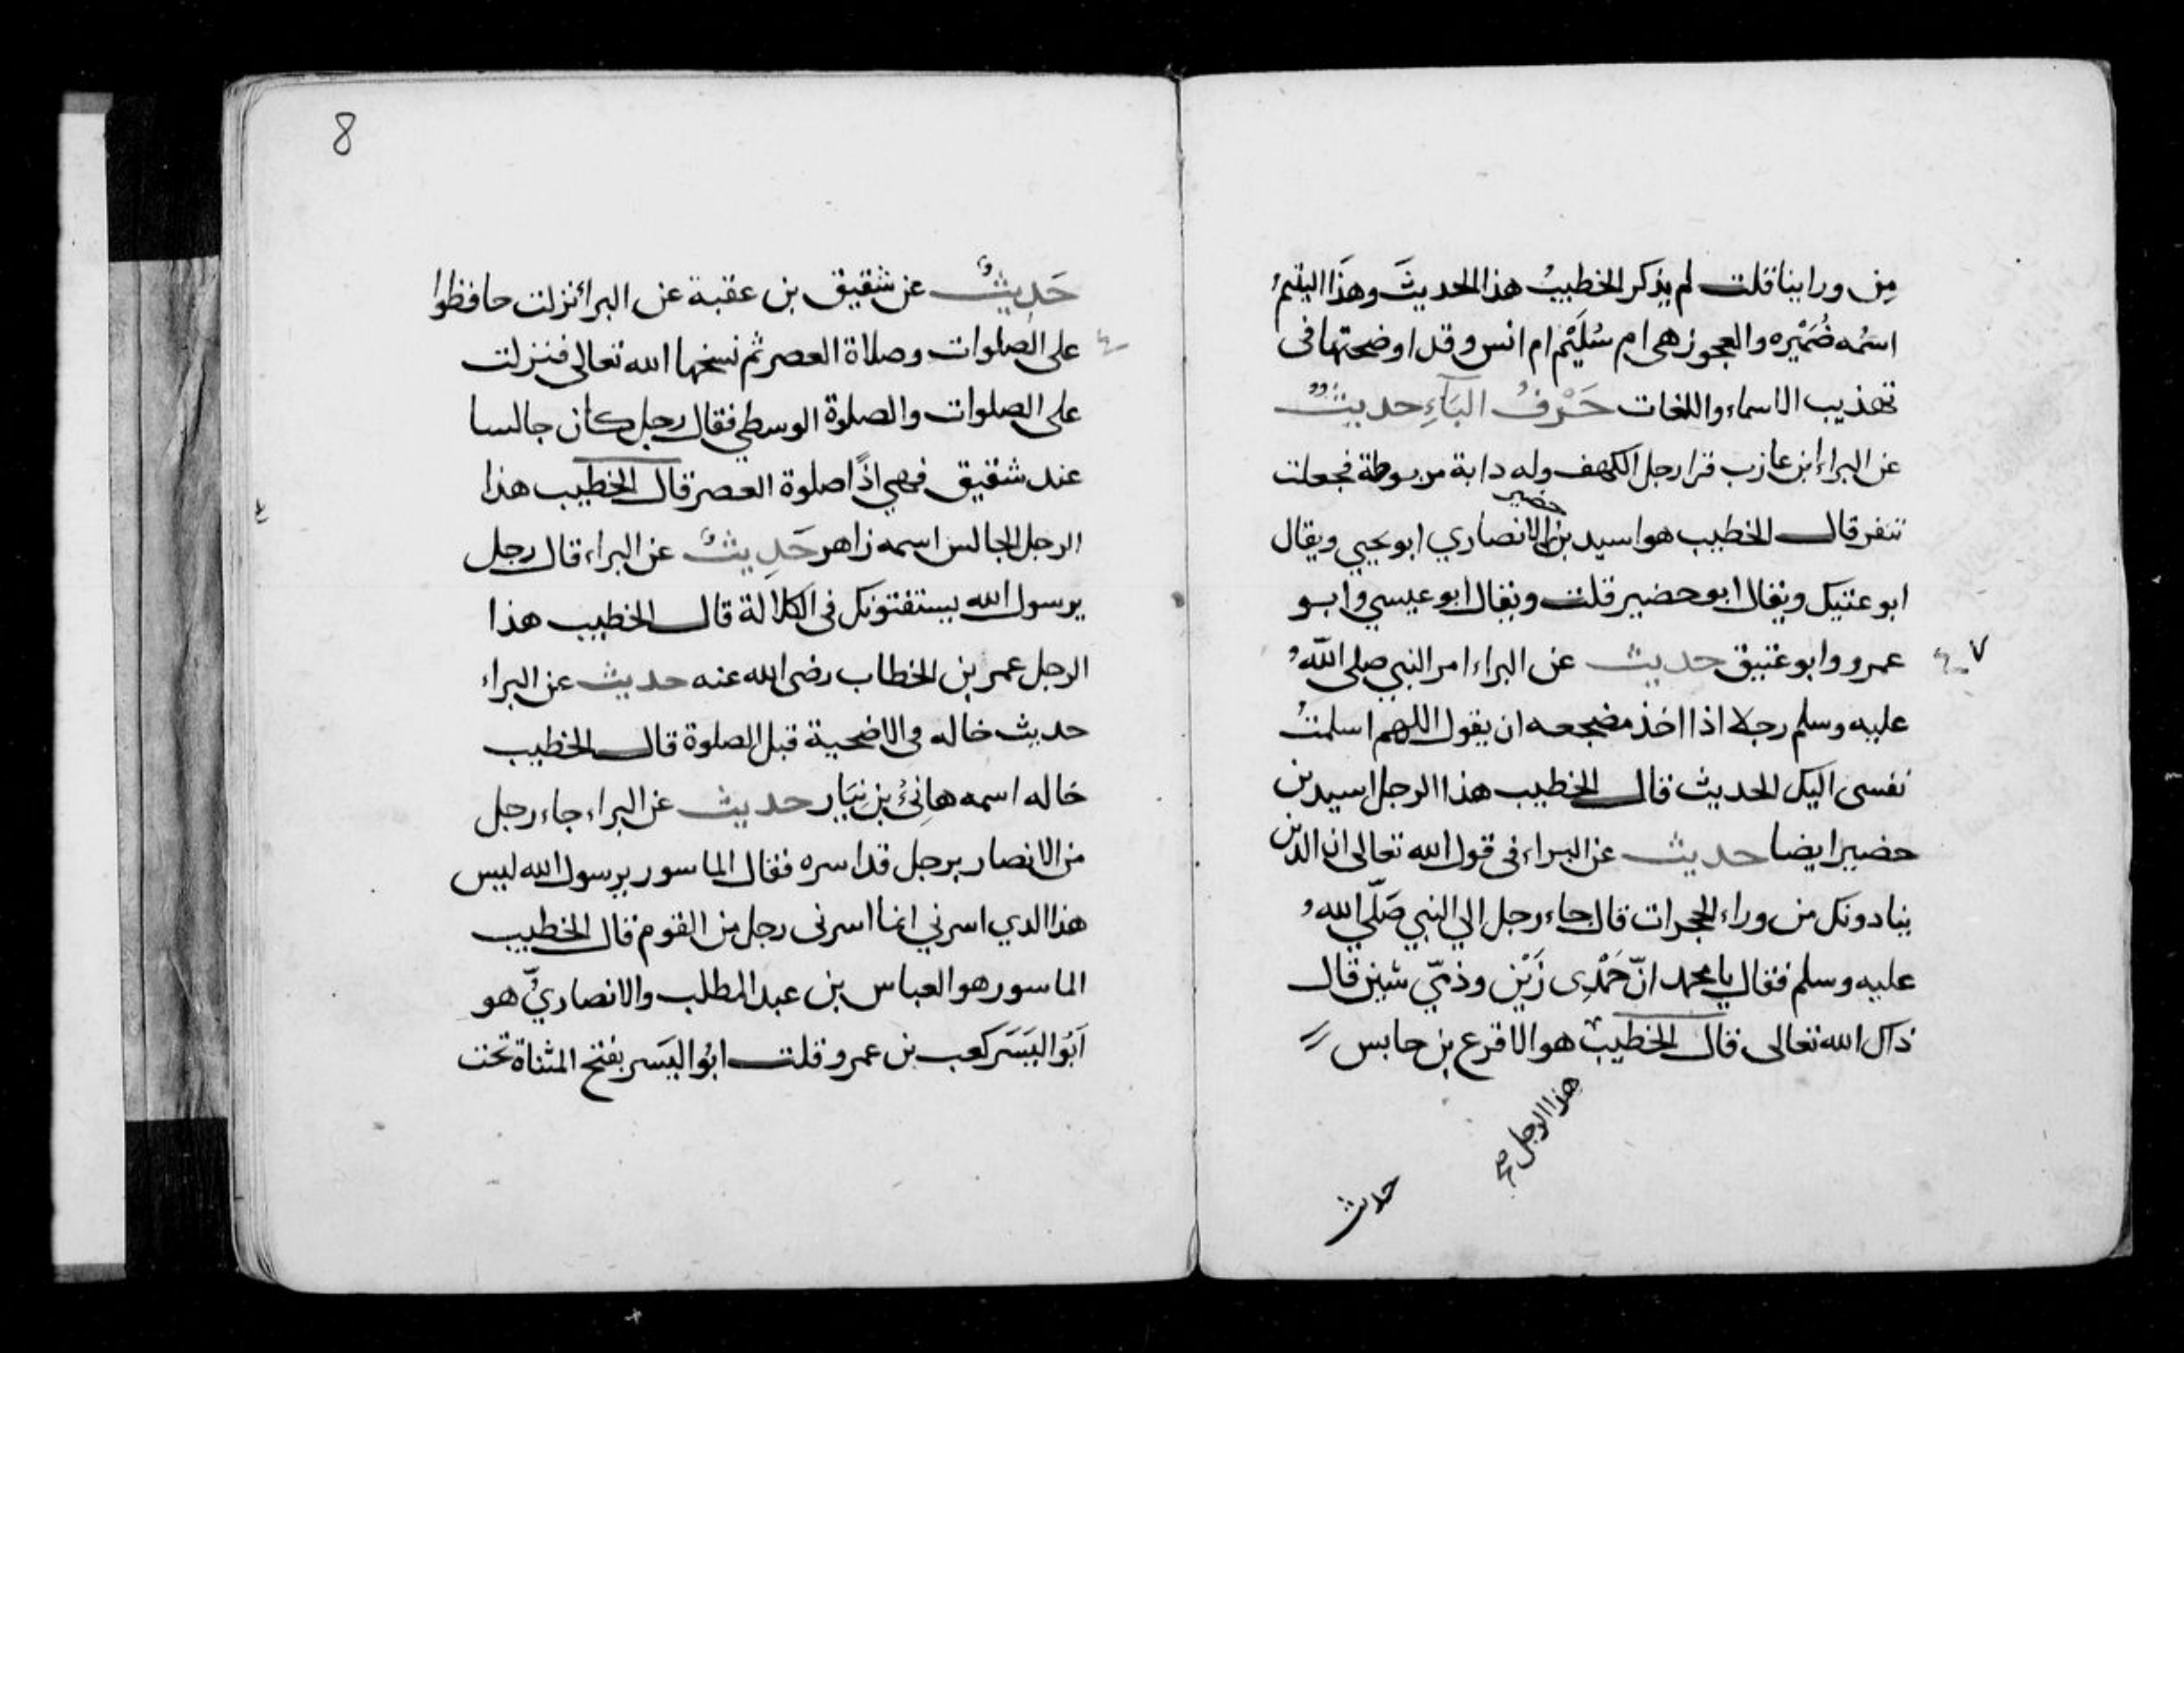 مِن وراينا قلت لم يذكر الخطيبُ هذا الحديثَ وهذَا اليتيمُ
اسمُه ضُمَيْره والعجوز هي ام سُلَيْم ام انس وقد اوضحتها في
تهذيب الاسماء واللغات حَرْفُ البَآءِ حديثٌ
عن البراء ابن عازب قرا رجل الكهف وله دابة مربوطة فجعلت
تنفر قال الخطيب هو اسيد بن حضير الانصاري ابو يحيي ويقال
ابو عتيك ويقال ابو حضير قلت ويقال ابو عيسي وابو
عمرو وابو عتيق حديث عن البراء امر النبي صلى اللّه
٧
عليه وسلم رجلا اذا اخذ مضجعه ان يقول اللهم اسلمتُ
نفسى اليك الحديث قال الخطيب هذا الرجل اسيد بن
حضير ايضا حديث عن البراء فى قول الله تعالى ان الذين
ينادونك من وراء الحجرات قال جاء رجل الي النبي صَلّي الله
عليه وسلم فقال يا محمد انّ حَمْدِى زَيْن وذمّي شين قال
ذاك الله تعالى قال الخطيب هو الاقرع بن حابس
هذا الرجل صح
حديث
8
حَدِيثٌ عن شقيق بن عقبة عن البرا نزلت حافظوا
على الصلوات وصلاة العصر ثم نسخها الله تعالى فنزلت
على الصلوات والصلوة الوسطي فقال رجل كان جالسا
عند شقيق فهي اذًا صلوة العصر قال الخطيب هذا
الرجل الجالس اسمه زاهر حَدِيثٌ عن البراء قال رجل
يرسول الله يستفتونك فى الكلالة قال الخطيب هذا
الرجل عمر بن الخطاب رضى الله عنه حديث عن البراء
حديث خاله فى الاضحية قبل الصلوة قال الخطيب
خاله اسمه هانِئُ بن نِيَار حديث عن البراء جاء رجل
من الانصار برجل قد اسره فقال الماسور يرسول الله ليس
هذا الدي اسرني انما اسرنى رجل من القوم قال الخطيب
الماسور هو العباس بن عبد المطلب والانصاريّ هو
اَبُو اليَسَر كعب بن عمرو قلت ابُو اليَسَر بفتح المثناة تحت